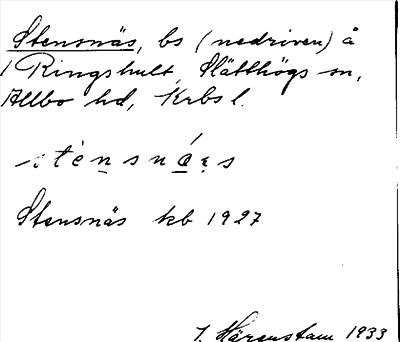 Stensnäs, bs (nedriven) å
1 Ringshult, Slätthögs sn,
Allbo hd, Krbs l.
Stensnäs kb 1927
J. Härenstam 1933